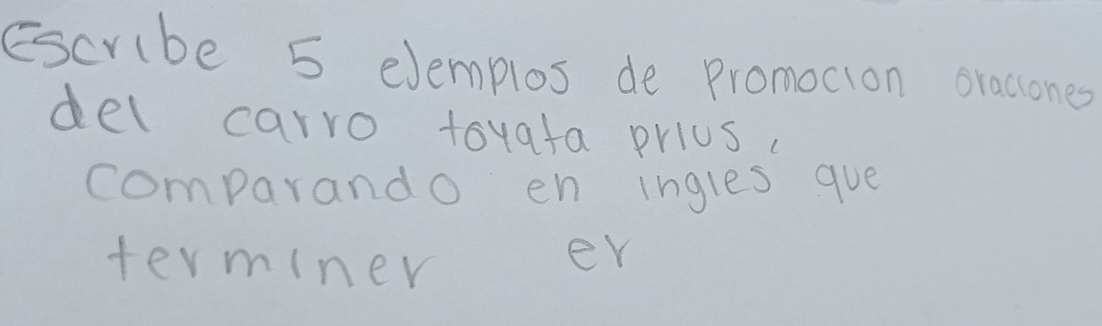 Escribe 5 eJemplos de Promocion oraciones
del carro toyata prius,
comparando en ingles que
terminer er